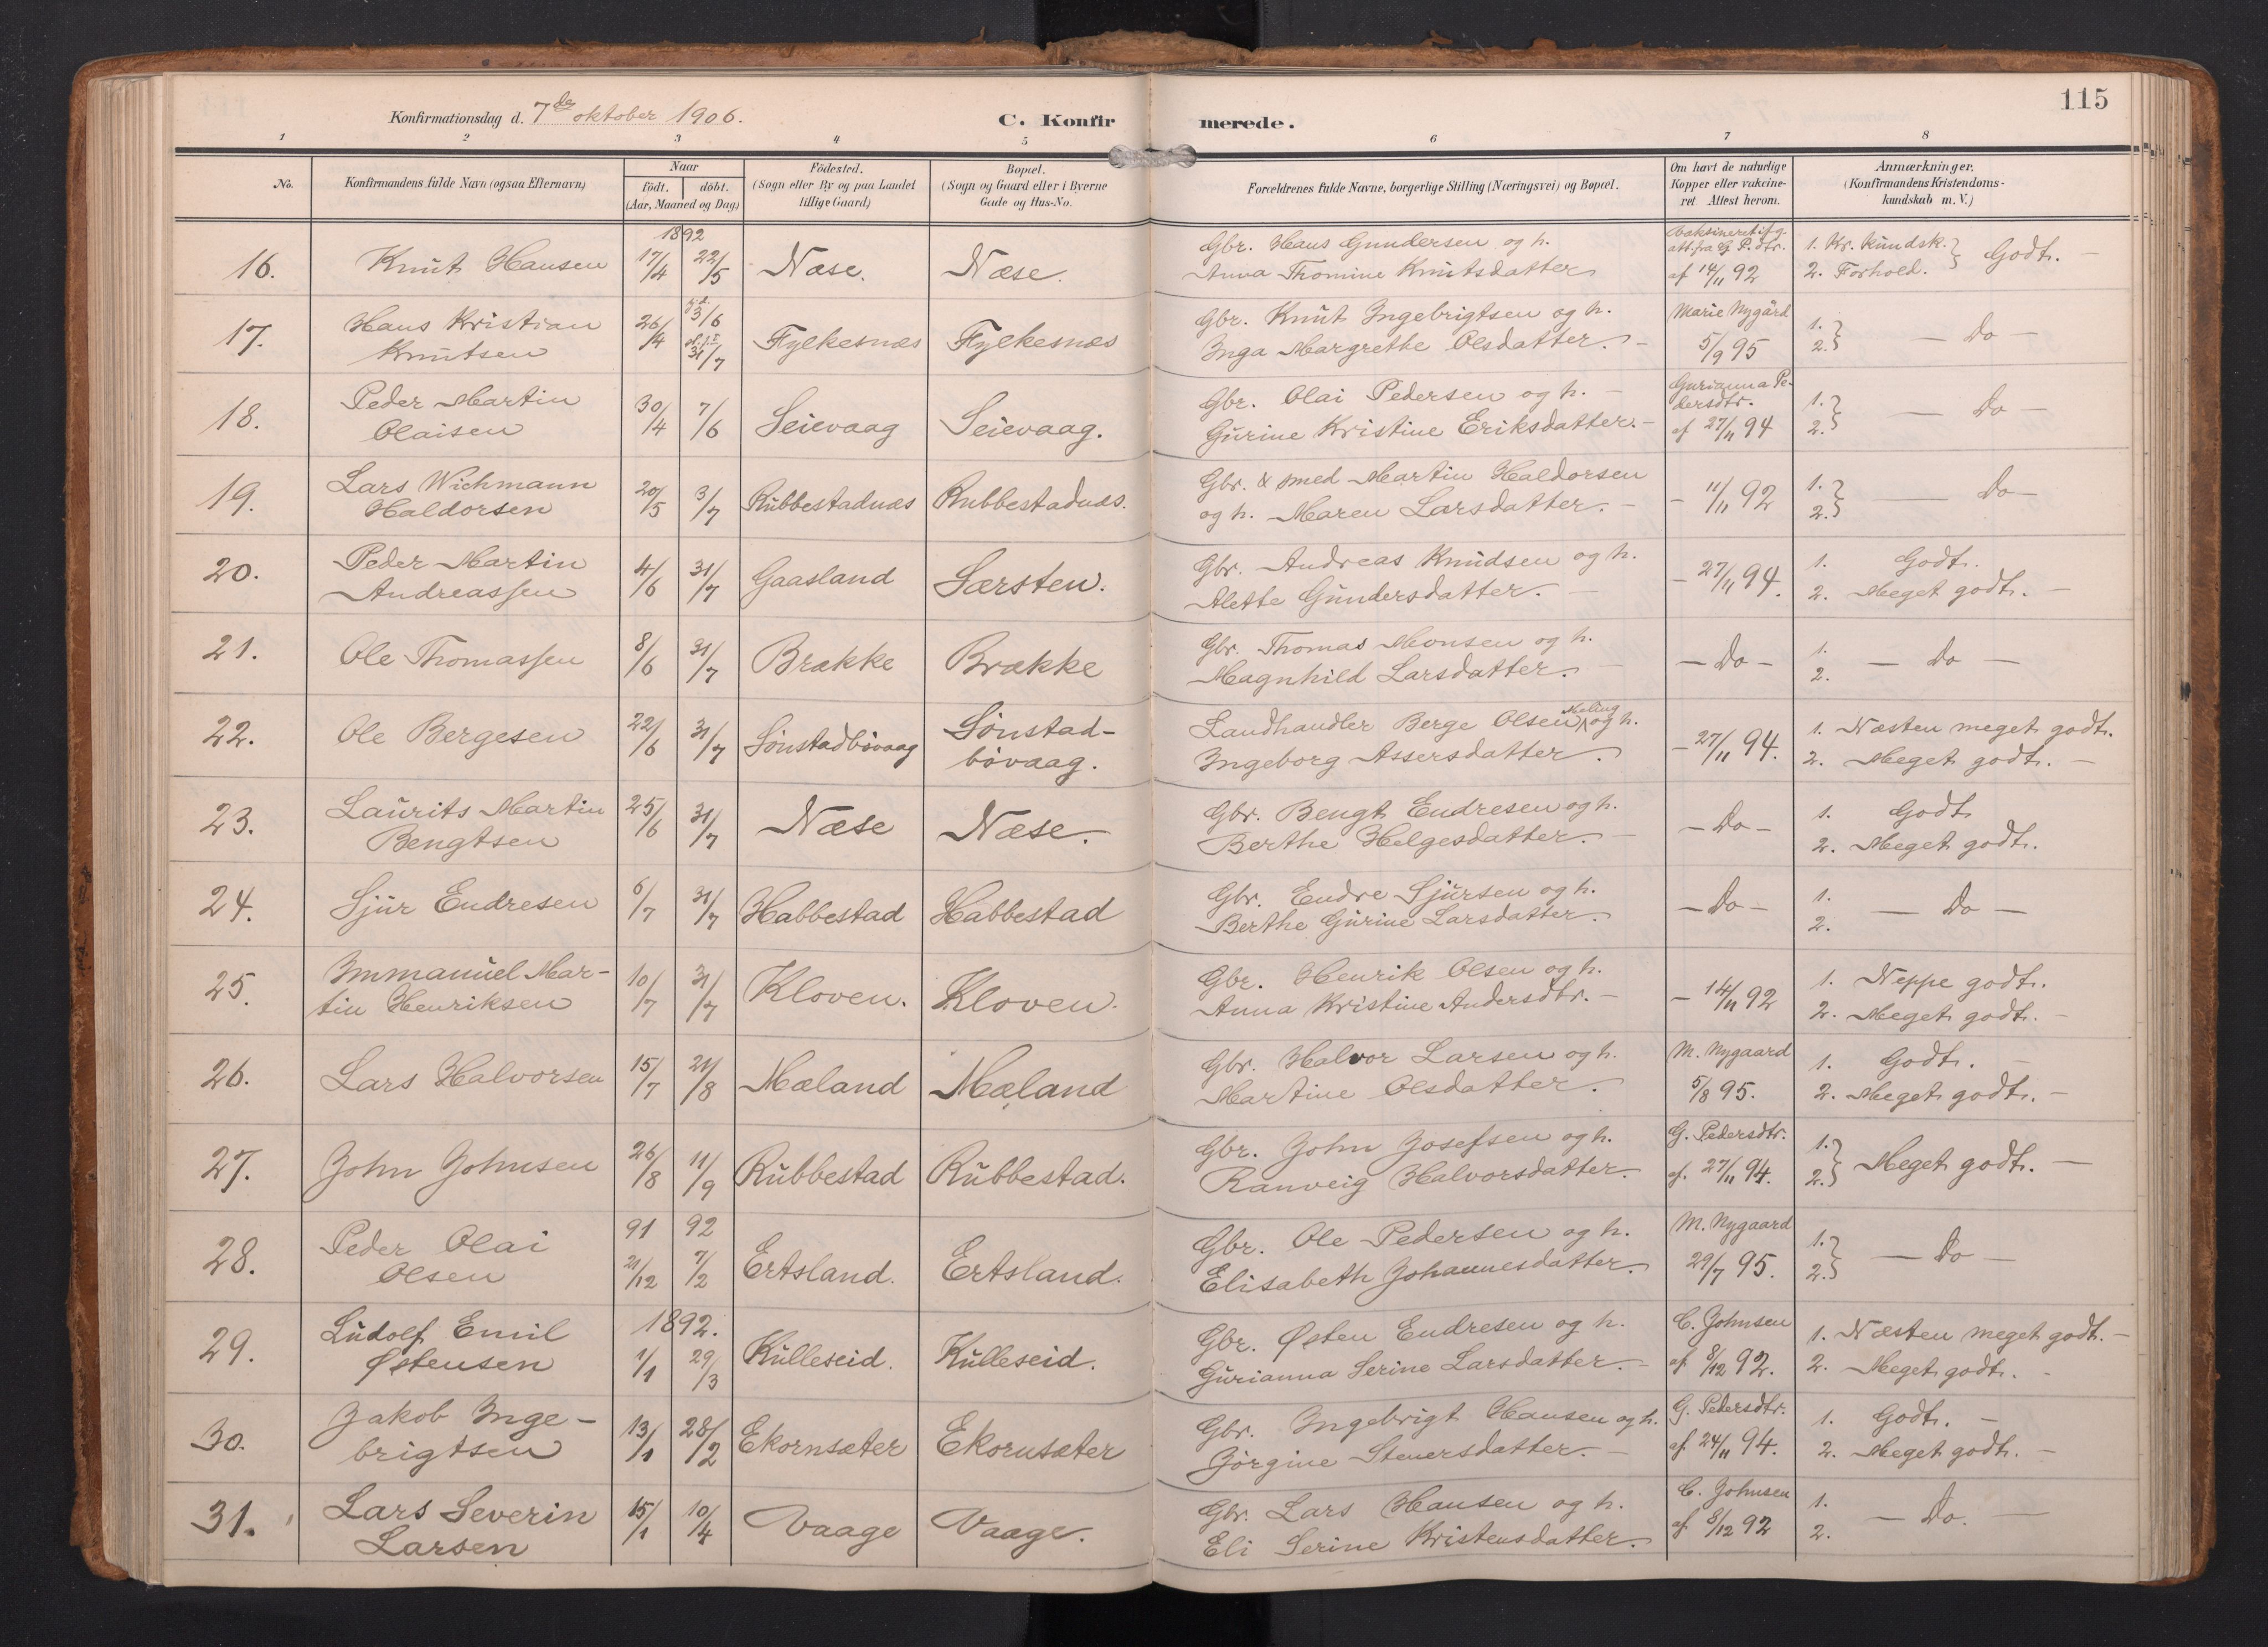 115
Konfirmationsdag d. 7de oktober 1906.
C. Konfirmerede.
1 2 3 4 5 6 7 8
No.
Konfirmandens fulde Navn (ogsaa Efternavn)
Naar
födt. döbt.
(Aar, Maaned og Dag)
Födested.
(Sogn eller By og paa Landet
tillige Gaard)
Bopæl.
(Sogn og Gaard eller i Byerne
Gade og Hus-No.
Forældrenes fulde Navne, borgerlige Stilling (Næringsvei) og Bopæl.
Om havt de naturlige
Kopper eller vakcine-
ret Attest herom.
Anmærkninger.
(Konfirmandens Kristendoms-
kundskab m. V.)
1892
16. Knut Hansen 17/4 22/5 Næse. Næse.
Gbr. Hans Gundersen og h.
Anna Thomine Knutsdatter
att. fra G. P. dtr.
af 14/11 92
1. Kr. kundsk.
2. Forhold. } Godt. –
17. Hans Kristian
Knutsen
26/4 3/6
31/7
Fylkesnæs Fylkesnæs
Gbr. Knut Ingebrigtsen og h.
Inga Margrethe Olsdatter. –
Marie Nygård
5/9 95
1.
2. } – Do –
18. Peder Martin
Olaisen
30/4 7/6 Seievaag Seievaag.
Gbr. Olai Pedersen og h. –
Gurine Kristine Eriksdatter. –
Gurianna Pe-
dersdtr.
af 27/11 94
1.
2. } – Do –
19. Lars Wichmann
Haldorsen
20/5 3/7 Rubbestadnæs Rubbestadnæs.
Gbr. & smed Martin Haldorsen
og h. Maren Larsdatter. –
– 11/11 92
1.
2. } – Do –
20. Peder Martin
Andreassen
4/6 31/7 Gaasland Særsten.
Gbr. Andreas Knudsen og h.
Alette Gundersdatter. –
– 27/11 94.
1. Godt.
2. Meget godt. –
21. Ole Thomassen 8/6 31/7 Brække Brække
Gbr. Thomas Monsen og h.
Magnhild Larsdatter. –
– Do –
1.
2. – Do –
22. Ole Bergesen 22/6 31/7 Sønstadbøvaag Sønstad-
bøvaag.
Landhandler Berge Olsen Meling og h.
Ingeborg Assersdatter.
– 27/11 94.
1. Næsten meget godt.
2. Meget godt. –
23. Laurits Martin
Bengtsen
25/6 31/7 Næse Næse.
Gbr. Bengt Endresen og h.
Berthe Helgesdatter. –
– Do –
1. Godt
2. Meget godt.
24. Sjur Endresen 6/7 31/7 Habbestad Habbestad
Gbr. Endre Sjursen og h.
Berthe Gurine Larsdatter.
– Do –
1.
2. – Do –
25. Immanuel Mar-
tin Henriksen
10/7 31/7 Kloven. Kloven.
Gbr. Henrik Olsen og h.
Anna Kristine Andersdtr. –
– 14/11 92
1. Neppe godt.
2. Meget godt. –
26. Lars Halvorsen 15/7 21/8 Mæland Mæland
Gbr. Halvor Larsen og h.
Martine Olsdatter.
M. Nygaard
5/8 95.
1. Godt. –
2. Meget godt. –
27. John Johnsen 26/8 11/9 Rubbestad Rubbestad.
Gbr. John Josefsen og h.
Ranveig Halvorsdatter.
G. Pedersdtr.
af. 27/11 94.
1.
2. } Meget godt. –
28. Peder Olai
Olsen
91 92
21/12 7/2 Ertsland. Ertsland.
Gbr. Ole Pedersen og h.
Elisabeth Johannesdatter.
M. Nygaard
29/7 95.
1.
2. } – Do –
1892.
29. Ludolf Emil
Østensen
1/1 29/3 Kulleseid. Kulleseid.
Gbr. Østen Endresen og h.
Gurianna Serine Larsdatter. –
C. Johnsen
af 8/12 92.
1. Næsten meget godt. –
2. Meget godt. –
30. Jakob Inge-
brigtsen
13/1 28/2 Ekornsæter Ekornsæter
Gbr. Ingebrigt Hansen og h.
Jørgine Stenersdatter. –
G. Pedersdtr.
af 24/11 94.
1. Godt. –
2. Meget godt. –
31. Lars Severin
Larsen
15/1 10/4 Vaage Vaage.
Gbr. Lars Hansen og h.
Eli Serine Kristensdatter.
C. Johnsen
af 8/12 92
1.
2. – Do. –